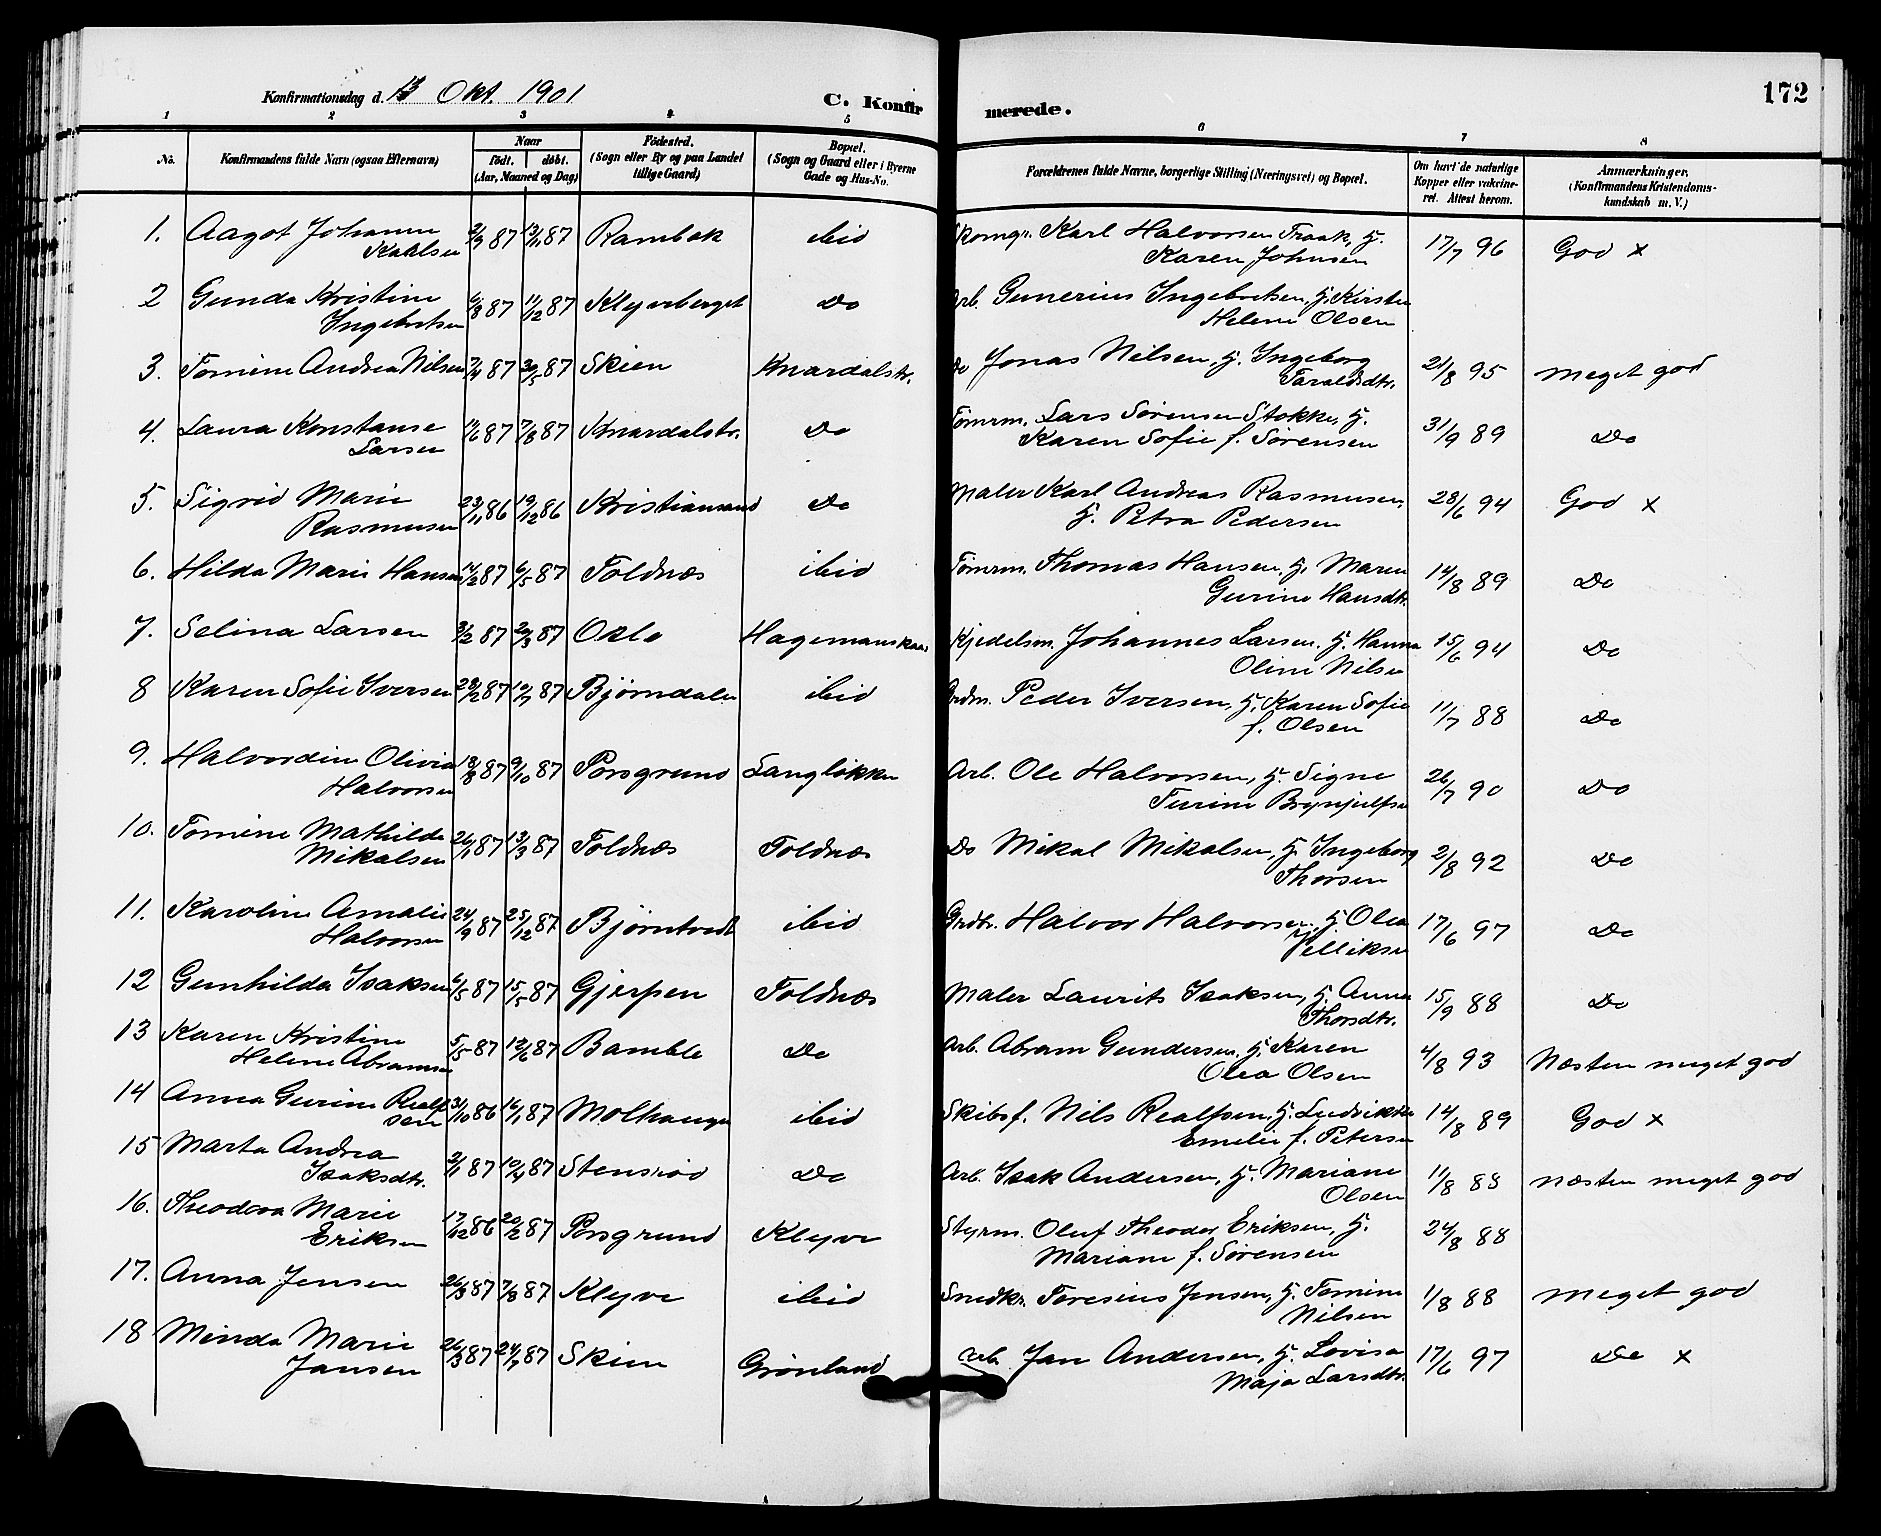 172
Konfirmationsdag d. 13 Okt. 1901
C. Konfir
merede.
1 2 3 4 5 6 7 8
No. Konfirmandens fulde Navn (ogsaa Efternavn) Naar født. døbt. (Aar, Maaned og Dag) Fødested. (Sogn eller By og paa Landet tillige Gaard) Bopæl. (Sogn og Gaard eller i Byerne Gade og Hus-No. Forældrenes fulde Navne, borgerlige Stilling (Næringsvei) og Bopæl. Om havt de naturlige Kopper eller vakcineret. Attest herom. Anmærkninger. (Konfirmandens Kristendomskundskab m. V.)
1. Aagot Johanne 2/9 87 13/11 87 Rambæk ibid Skomgr. Karl Halvorsen Traak, H. 17/7 96 God x
Karlsen Karen Johnsen
2 Gunda Kristine 6/8 87 11/12 87 Klyveberget Do Arb. Gunerius Ingebretsen, H. Kirsten
Ingebretsen Helene Olsen
3. Tomine Andrea Nilsen 7/4 87 30/5 87 Skien Knardalstr. Do Jonas Nilsen, H. Ingeborg 21/8 95 meget god
Taraldsdtr.
4. Laura Konstanse 11/6 87 7/8 87 Knardalstr. Do Tømrm. Lars Sørensen Stokke, H. 31/9 89 Do
Larsen Karen Sofie f. Sørensen
5. Sigrid Marie 23/11 86 19/12 86 Kristiansand Do Maler Karl Andreas Rasmussen, 28/6 94 God x
Rasmusen H. Petra Pedersen
6. Hilda Marie Hansen 14/2 87 6/5 87 Toldnæs ibid Tømrm. Thomas Hansen, H. Maren 14/8 89 Do
Gurine Hansdtr.
7. Selina Larsen 3/2 87 20/3 87 Oslo Hagemanskaas Kjedelsm. Johannes Larsen, H. Hanna 15/6 94 Do
Oline Nilsen
8 Karen Sofie Iversen 28/2 87 10/7 87 Bjørndalen ibid Grdm. Peder Iversen, H. Karen Sofie 11/7 88 Do
f. Olsen
9. Halvordine Olivia 18/8 87 9/10 87 Porsgrund Langløkken Arb. Ole Halvorsen, H. Signe 26/7 90 Do
Halvorsen Turine Brynjulfsen
10. Tomine Mathilde 26/1 87 13/3 87 Toldnæs Toldnæs Do Mikal Mikalsen, H. Ingeborg 2/8 92 Do
Mikalsen Thorsen
11. Karoline Amalie 24/9 87 25/12 87 Bjørntvedt ibid Grdbr. Halvor Halvorsen, H. Olea 17/6 97 Do
Halvorsen
12 Gunhilda Isaksen 6/5 87 15/5 87 Gjerpen Toldnæs Maler Laurits Isaksen, H. Anna 15/9 88 Do
Thorsdtr.
13 Karen Kristine 5/5 87 12/6 87 Bamble Do Arb. Abram Gundersen, H. Karen 4/8 93 Næsten meget god
Helene Abramsen Olea Olsen
14 Anna Gurine Realf 31/10 86 16/1 87 Molhaugen ibid Skibsf. Nils Realfsen, H. Ludvikke 14/8 89 God x
sen Emelie f. Petersen
15 Marta Andrea 2/1 87 10/4 87 Stensrød Do Arb. Isak Andersen, H. Mariane 11/8 88 næsten meget god
Isaksdtr. Olsen
16. Theodora Marie 17/12 86 20/2 87 Porsgrund Klyve Styrm. Oluf Theodor Eriksen, H. 24/8 88
Eriksen Mariane f. Sørensen
17. Anna Jensen 26/3 87 7/8 87 Klyve ibid Snedkr. Toresius Jensen, H. Tomine 1/8 88 meget god
Nilsen
18 Minda Marie 26/3 87 24/7 87 Skien Grønland Arb. Jan Andersen, H. Lovisa 17/6 97 Do x
Jansen Maja Larsdtr.